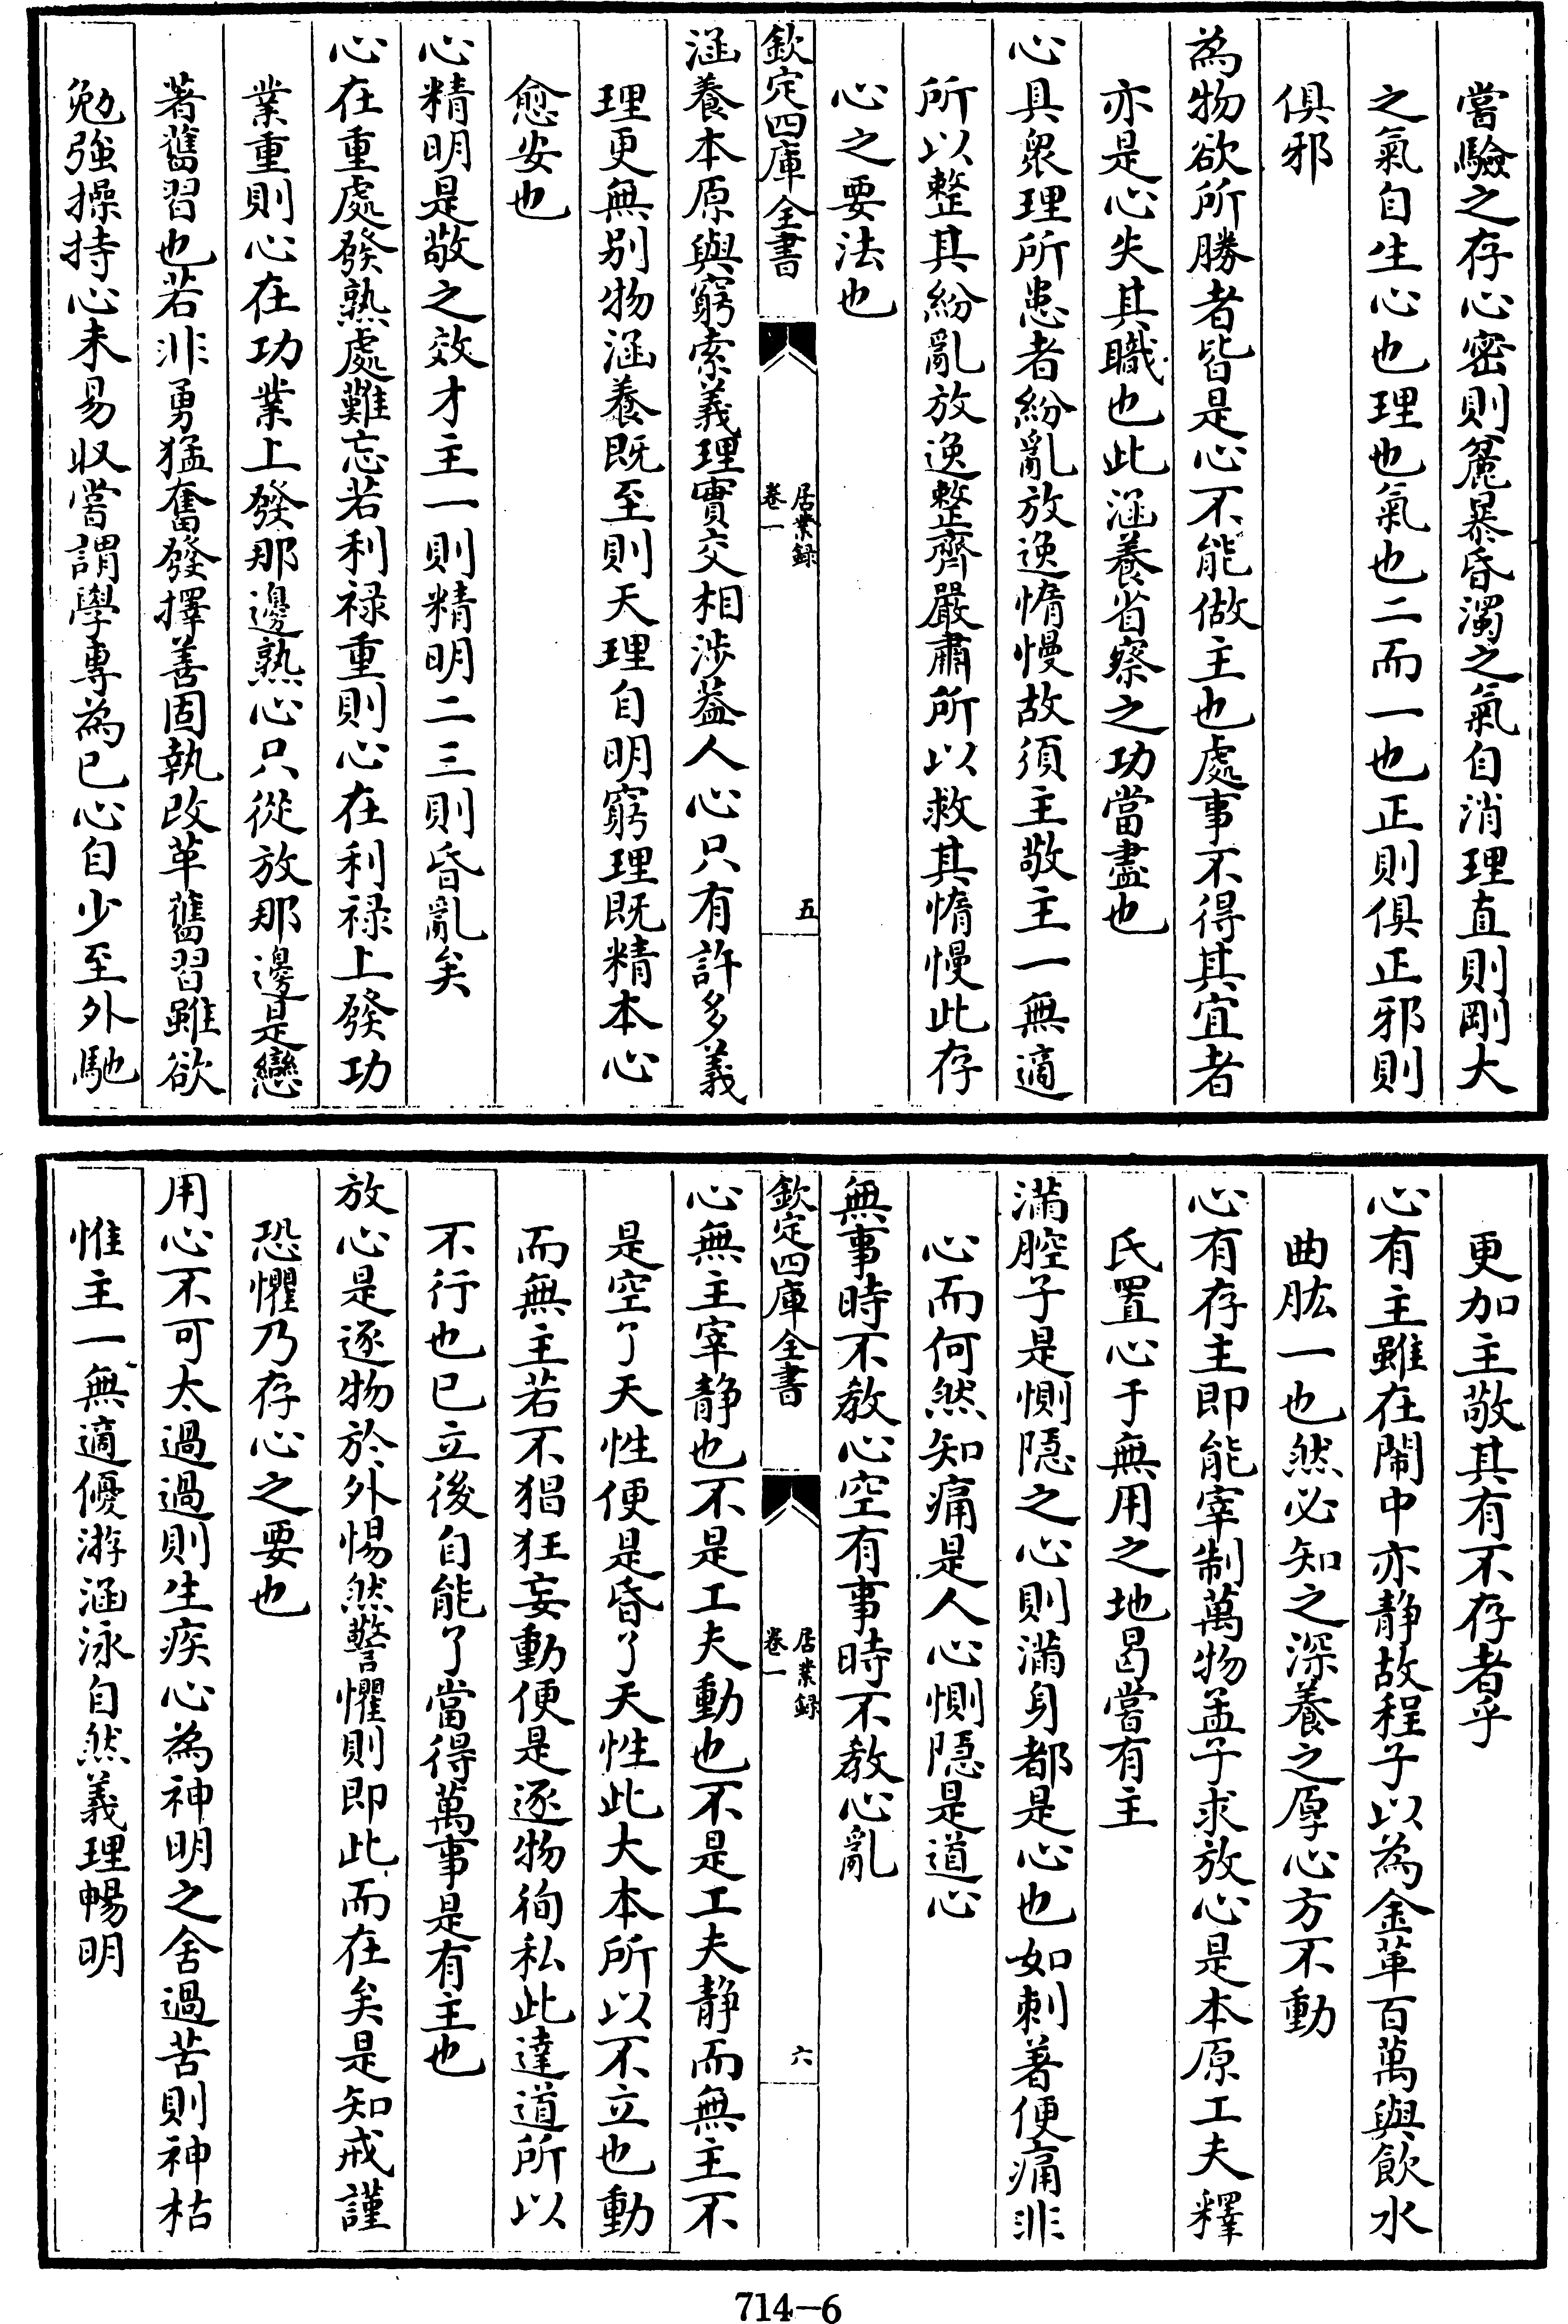 嘗驗之存心密則麄暴昏濁之氣自消理直則剛大
之氣自生心也理也氣也二而一也正則俱正邪則
俱邪
為物欲所勝者皆是心不能做主也處事不得其宜者
亦是心失其職也此涵養省察之功當盡也
心具衆理所患者紛亂放逸惰慢故須主敬主一無適
所以整其紛亂放逸整齊嚴肅所以救其惰慢此存
心之要法也
欽定四庫全書
居業録
卷一
五
涵養本原與窮索義理實交相涉葢人心只有許多義
理更無别物涵養既至則天理自明窮理既精本心
愈安也
心精明是敬之效才主一則精明二三則昏亂矣
心在重處發熟處難忘若利禄重則心在利禄上發功
業重則心在功業上發那邊熟心只從放那邊是戀
著舊習也若非勇猛奮發擇善固執改革舊習雖欲
勉強操持心未易収嘗謂學專為己心自少至外馳
更加主敬其有不存者乎
心有主雖在鬧中亦静故程子以為金革百萬與飲水
曲肱一也然必知之深養之厚心方不動
心有存主即能宰制萬物孟子求放心是本原工夫釋
氏置心于無用之地曷嘗有主
滿腔子是惻隠之心則滿身都是心也如刺著便痛非
心而何然知痛是人心惻隠是道心
無事時不教心空有事時不教心亂
欽定四庫全書
居業録
卷一
六
心無主宰静也不是工夫動也不是工夫静而無主不
是空了天性便是昏了天性此大本所以不立也動
而無主若不猖狂妄動便是逐物徇私此達道所以
不行也已立後自能了當得萬事是有主也
放心是逐物於外惕然警懼則即此而在矣是知戒謹
恐懼乃存心之要也
用心不可太過過則生疾心為神明之舍過苦則神枯
惟主一無適優游涵泳自然義理暢明
714-6